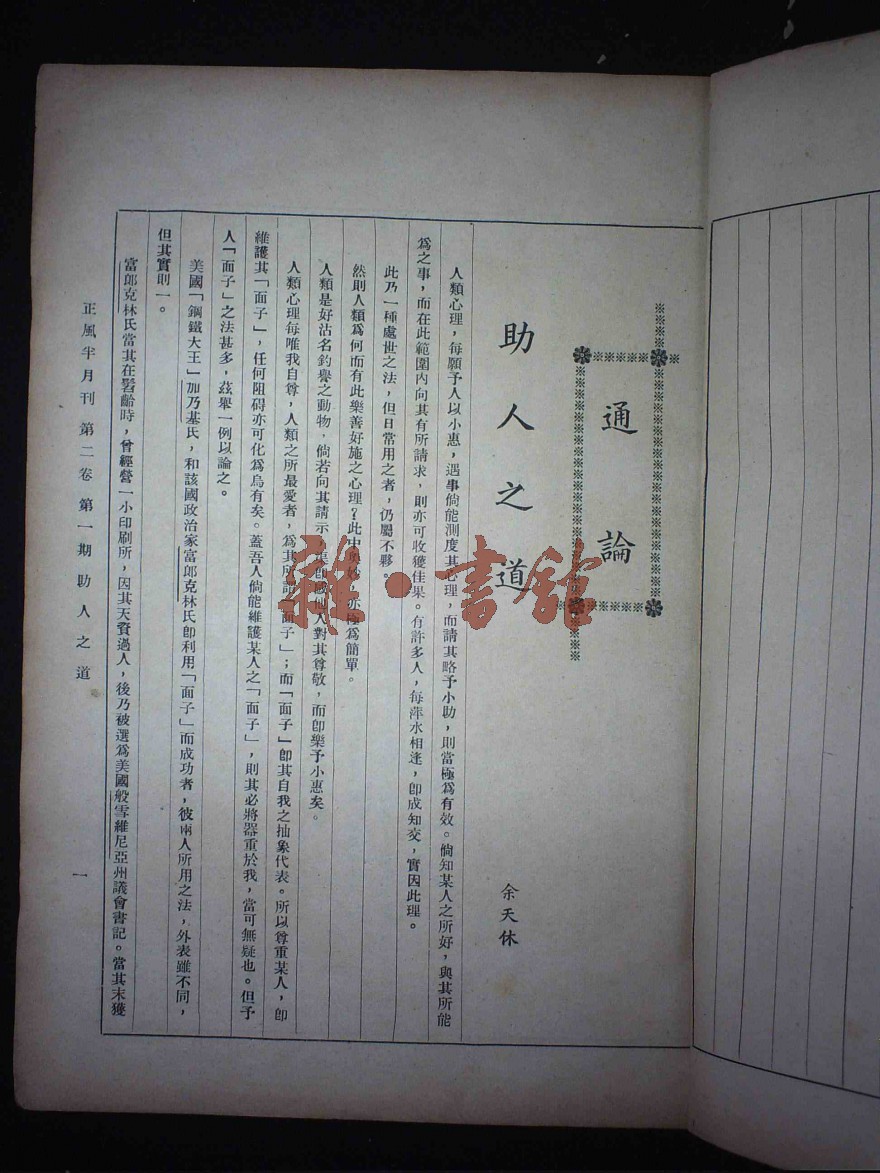 通論
助人之道
余天休
人類心理，每願予人以小惠，遇事倘能測度其心理，而請其略予小助，則當極爲有效。倘知某人之所好，與其所能
爲之事，而在此範圍內向其有所請求，則亦可收獲佳果。有許多人，每萍水相逢，卽成知交，實因此理。
此乃一種處世之法，但日常用之者，仍屬不夥。
然則人類爲何而有此樂善好施之心理？此中奧妙，亦極爲簡單。
人類是好沽名釣譽之動物，倘若向其請示，渠卽感他人對其尊敬，而卽樂予小惠矣。
人類心理每唯我自尊，人類之所最愛者，爲其所謂「面子」；而「面子」卽其自我之抽象代表。所以尊重某人，卽
維護其「面子」，任何阻碍亦可化爲烏有矣。蓋吾人倘能維護某人之「面子」，則其必將器重於我，當可無疑也。但予
人「面子」之法甚多，茲舉一例以論之。
美國「鋼鐵大王」加乃基氏，和該國政治家富郎克林氏卽利用「面子」而成功者，彼兩人所用之法，外表雖不同，
但其實則一。
富郎克林氏當其在髫齡時，曾經營一小印刷所，因其天資過人，後乃被選爲美國般雪維尼亞州議會書記。當其未獲
正風半月刊 第二卷 第一期 助人之道
一
雜·書館